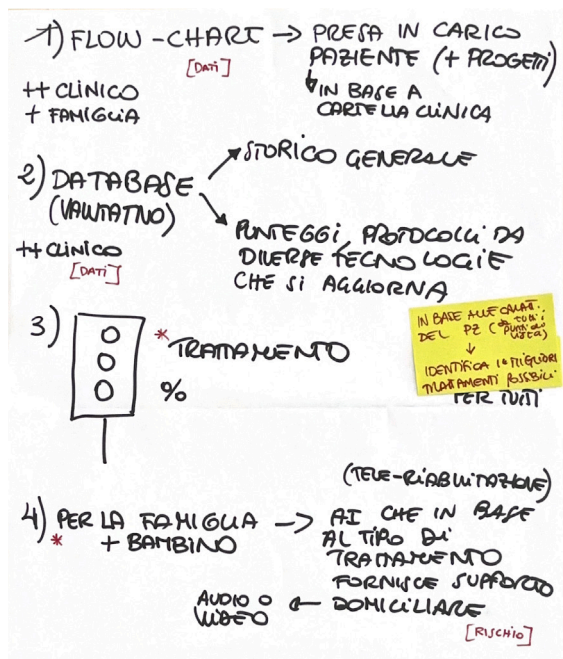 1) FLOW-CHART → PRESA IN CARICO
PAZIENTE (+ PROGETTI)
[DATI]
↓ IN BASE A
CARTELLA CLINICA
++ CLINICO
+ FAMIGLIA
2) DATABASE
(VALUTATIVO)
STORICO GENERALE
PUNTEGGI, PROTOCOLLI DA
DIVERSE TECNOLOGIE
CHE SI AGGIORNA
++ CLINICO
[DATI]
3)
* TRATTAMENTO
%
IN BASE ALLE CARAT.
DEL PZ (da tutti i
punti di
vista)
↓
IDENTIFICA I MIGLIORI
TRATTAMENTI POSSIBILI
PER TUTTI
(TELE-RIABILITAZIONE)
4) PER LA FAMIGLIA → AI CHE IN BASE
* + BAMBINO
AL TIPO DI
TRATTAMENTO
FORNISCE SUPPORTO
DOMICILIARE
AUDIO O ←
VIDEO
[RISCHIO]